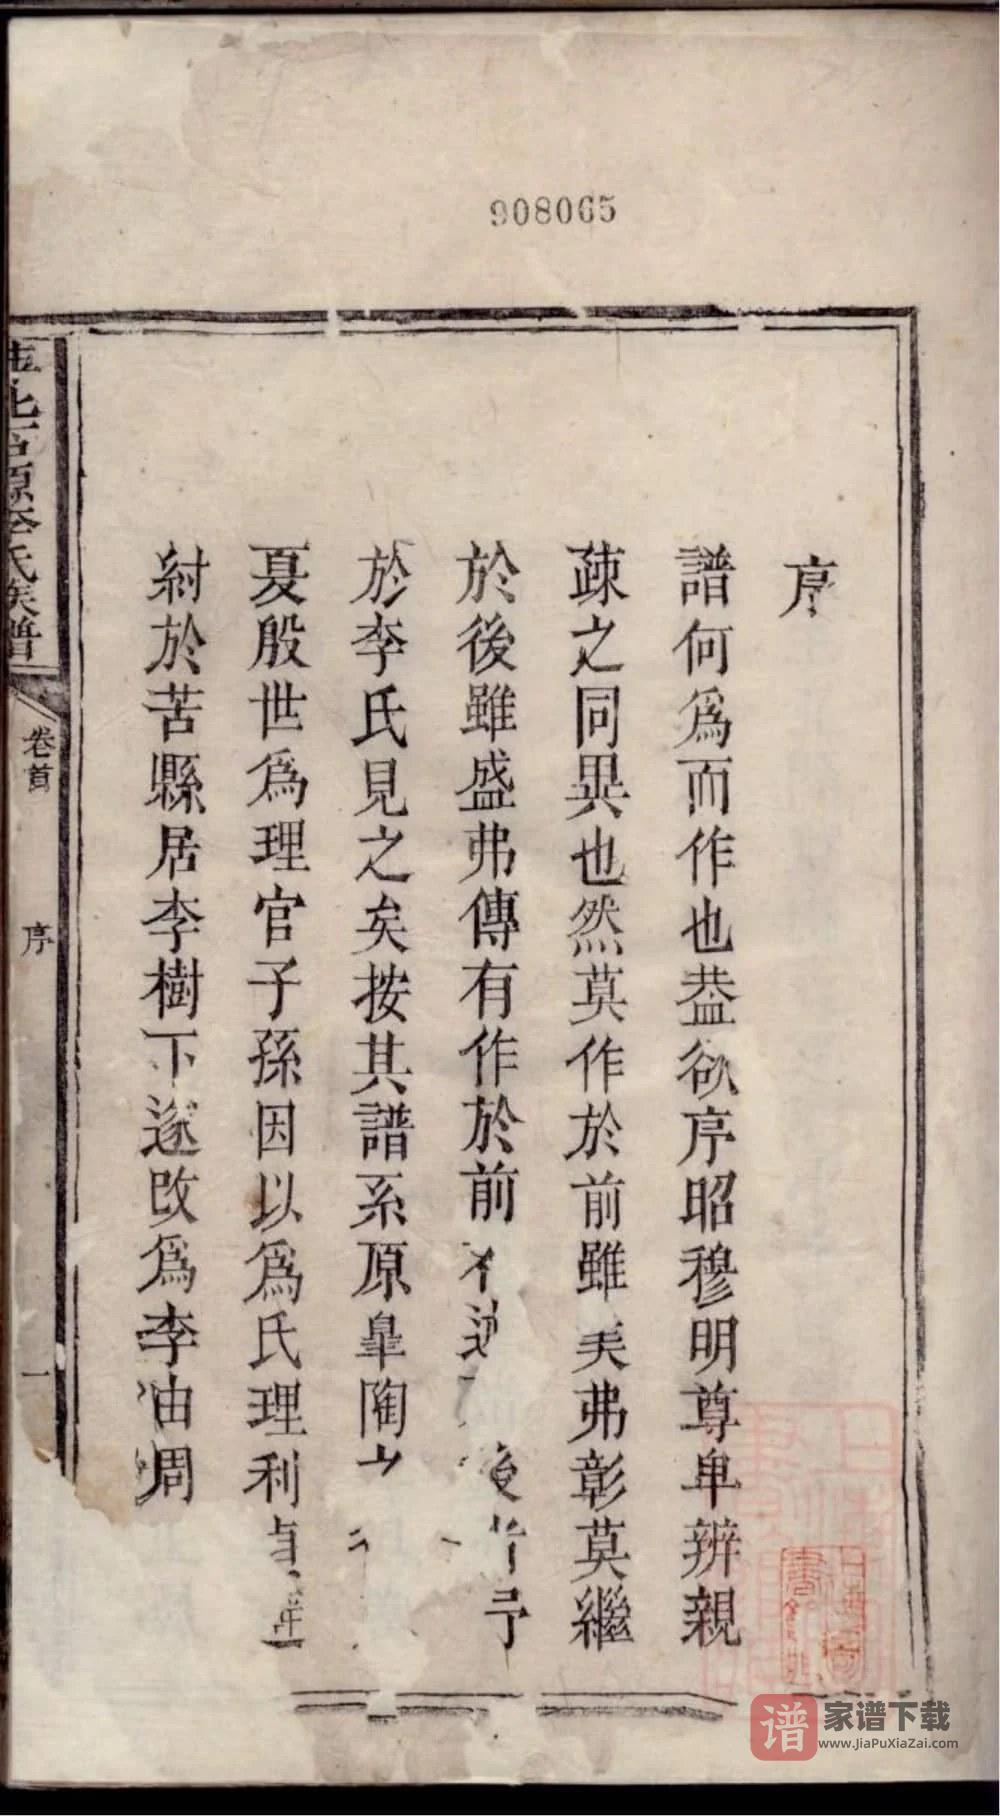 908065
序
譜何爲而作也葢欲序昭穆明尊卑辨親
疎之同異也然莫作於前雖美弗彰莫繼
於後雖盛弗傳有作於前
於李氏見之矣按其譜系原臯陶
夏殷世爲理官子孫因以爲氏理利貞
紂於苦縣居李樹下遂改爲李由周
源李氏族譜
卷首
序
一
谱
家谱下载
www.JiaPuXiaZai.com